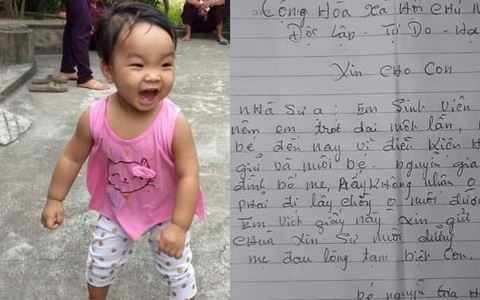 Cộng Hòa Xã Hội Chủ N
Độc Lập - Tự Do - Hạ
Xin cho con
Nhà Sư ạ: Em Sinh Viên
nên em trót dại một lần,
bé đến nay vì điều kiện
giữ và nuôi bé nguyễn gia
đình bố mẹ, Không nhân
phải đi lấy chồng 0 nuôi được
Em viết giấy này xin gửi
chùa xin Sư nuôi dưỡng
mẹ đau lòng tạm biệt con.
bé nguyễn gia